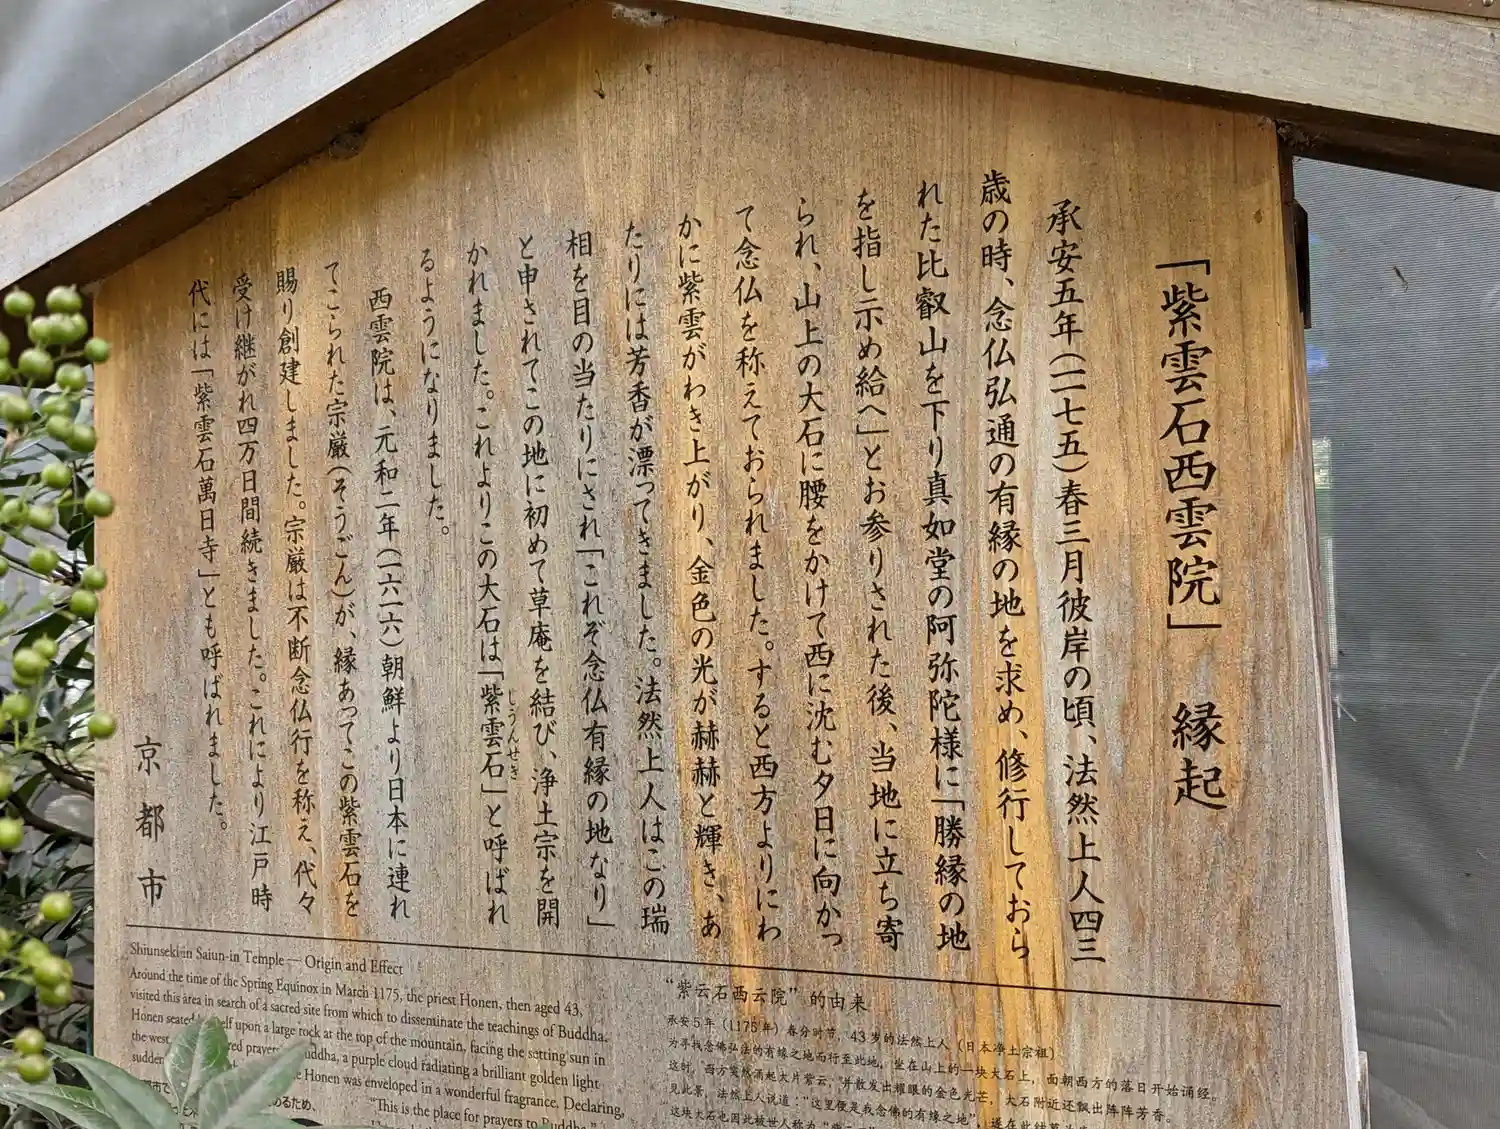 「紫雲石西雲院」 縁起
承安五年(一一七五)春三月彼岸の頃、法然上人四三
歳の時、念仏弘通の有縁の地を求め、修行しておら
れた比叡山を下り真如堂の阿弥陀様に「勝縁の地
を指し示め給へ」とお参りされた後、当地に立ち寄
られ、山上の大石に腰をかけて西に沈む夕日に向かっ
て念仏を称えておられました。すると西方よりにわ
かに紫雲がわき上がり、金色の光が赫赫と輝き、あ
たりには芳香が漂ってきました。法然上人はこの瑞
相を目の当たりにされ「これぞ念仏有縁の地なり」
と申されてこの地に初めて草庵を結び、浄土宗を開
かれました。これよりこの大石は「紫雲石」と呼ばれ
しうんせき
るようになりました。
西雲院は、元和二年(一六一六)朝鮮より日本に連れ
てこられた宗厳(そうごん)が、縁あってこの紫雲石を
賜り創建しました。宗厳は不断念仏行を称え、代々
受け継がれ四万日間続きました。これにより江戸時
代には「紫雲石萬日寺」とも呼ばれました。
京都市
Shiunseki in Saiun-in Temple — Origin and Effect
Around the time of the Spring Equinox in March 1175, the priest Honen, then aged 43,
visited this area in search of a sacred site from which to dissentinate the teachings of Buddha.
Honen seated elf upon a large rock at the top of the mountain, facing the setting sun in
the west, red prayers uddha, a purple cloud radiating a brilliant golden light
sudden e Honen was enveloped in a wonderful fragrance. Declaring,
"This is the place for prayers to Buddha,"
めるため、
"紫云石西云院"的由来
承安5年(1175年)春分时节,43岁的法然上人(日本净土宗祖)
为寻找念佛弘法的有缘之地而行至此地,坐在山上的一块大石上,面朝西方的落日开始诵经。
这时,西方突然涌起大片紫云,并散发出耀眼的金色光芒,大石附近还飘出阵阵芳香。
见此景,法然上人说道:"这里便是我念佛的有缘之地",遂在此
这块大石也因此被世人称为